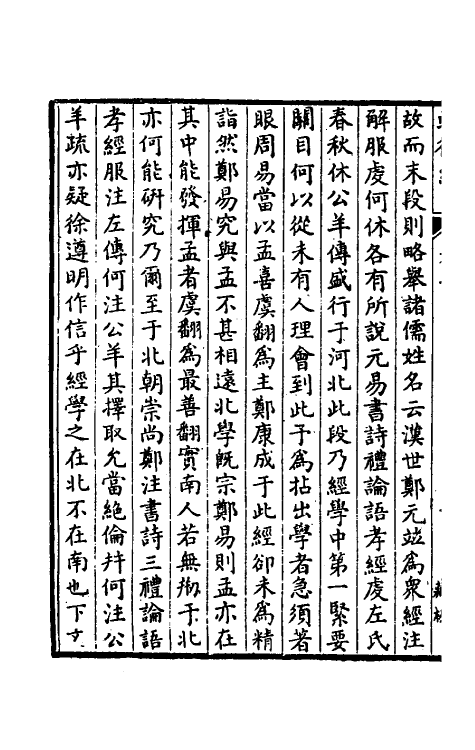 故而末段則略舉諸儒姓名云漢世鄭元竝為衆經注
解服虔何休各有所說元易書詩禮論語孝經虔左氏
春秋休公羊傳盛行于河北此段乃經學中第一緊要
關目何以從未有人理會到此予為拈出學者急須著
眼周易當以孟喜虞翻為主鄭康成于此經卻未為精
詣然鄭易究與孟不甚相遠北學既宗鄭易則孟亦在
其中能發揮孟者虞翻為最善翻實南人若無 于北
亦何能研究乃爾至于北朝崇尚鄭注書詩三禮論語
孝經服注左傳何注公羊其擇取允當絕倫幷何注公
羊疏亦疑徐遵明作信乎經學之在北不在南也下文